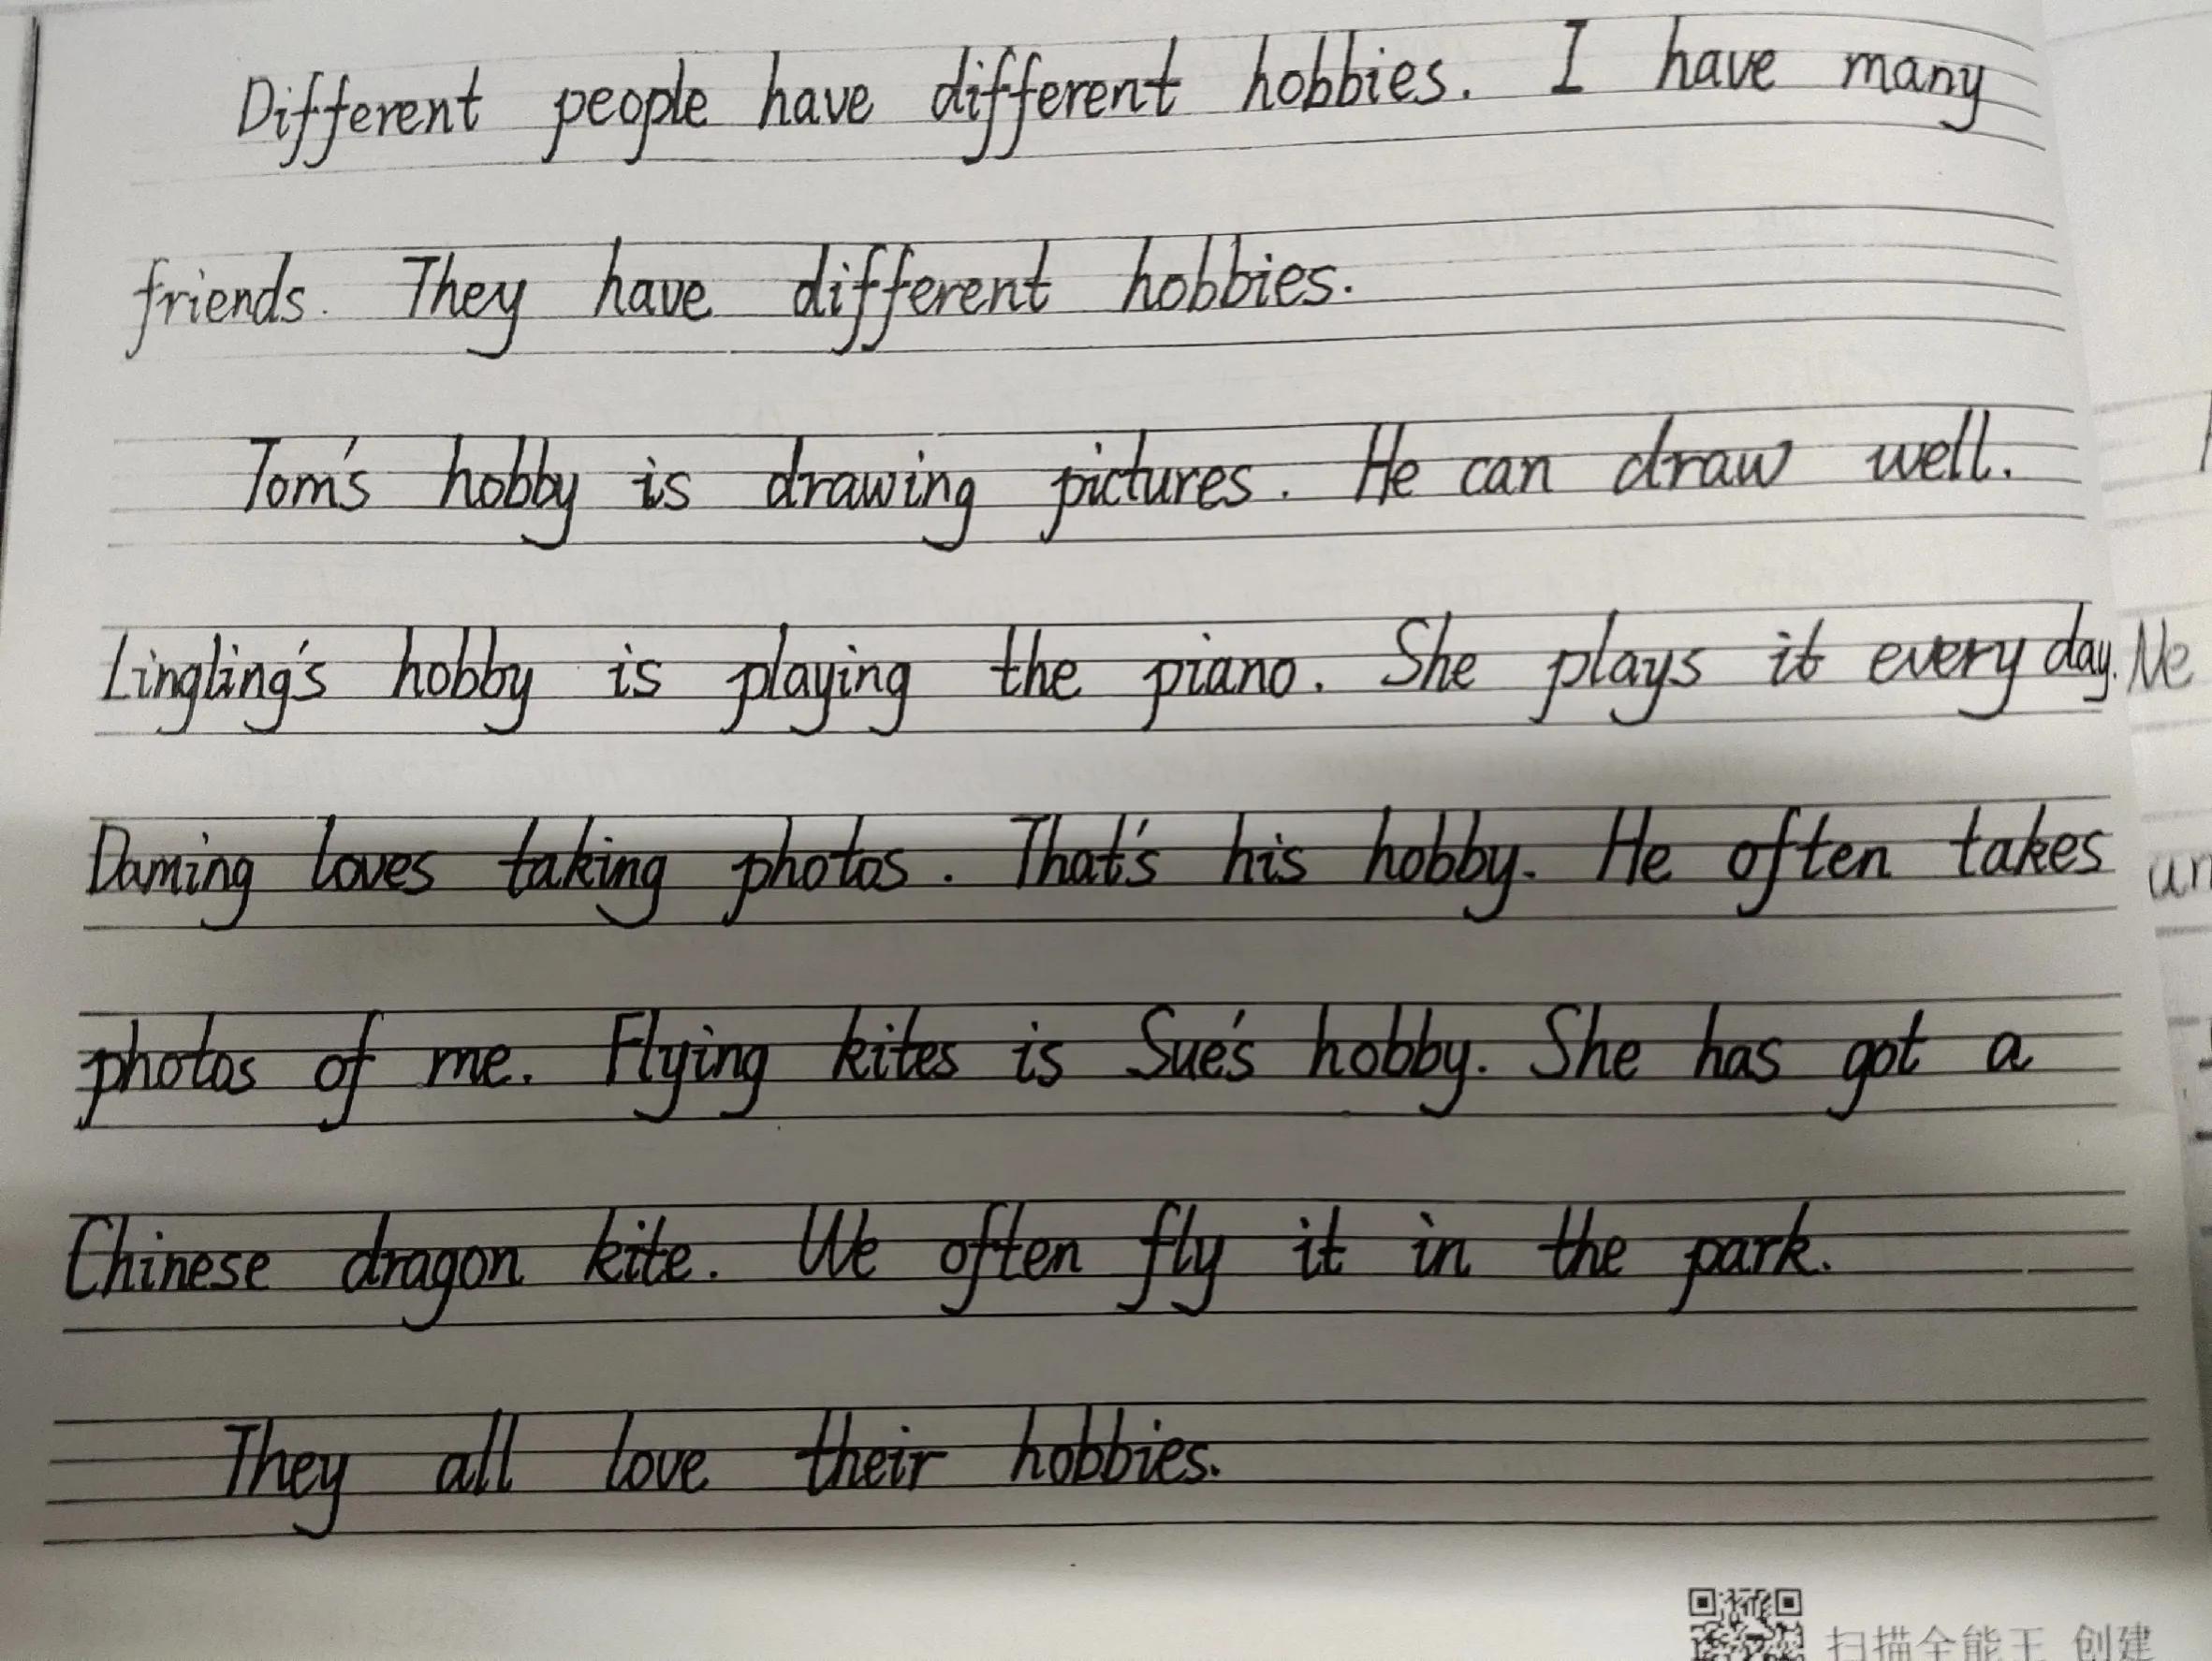 Different people have different hobbies. I have many
friends. They have different hobbies.
Tom's hobby is drawing pictures. He can draw well.
Lingling's hobby is playing the piano. She plays it every day.
Daming loves taking photos. That's his hobby. He often takes
photos of me. Flying kites is Sue's hobby. She has got a
Chinese dragon kite. We often fly it in the park.
They all love their hobbies.
扫描全能王 创建